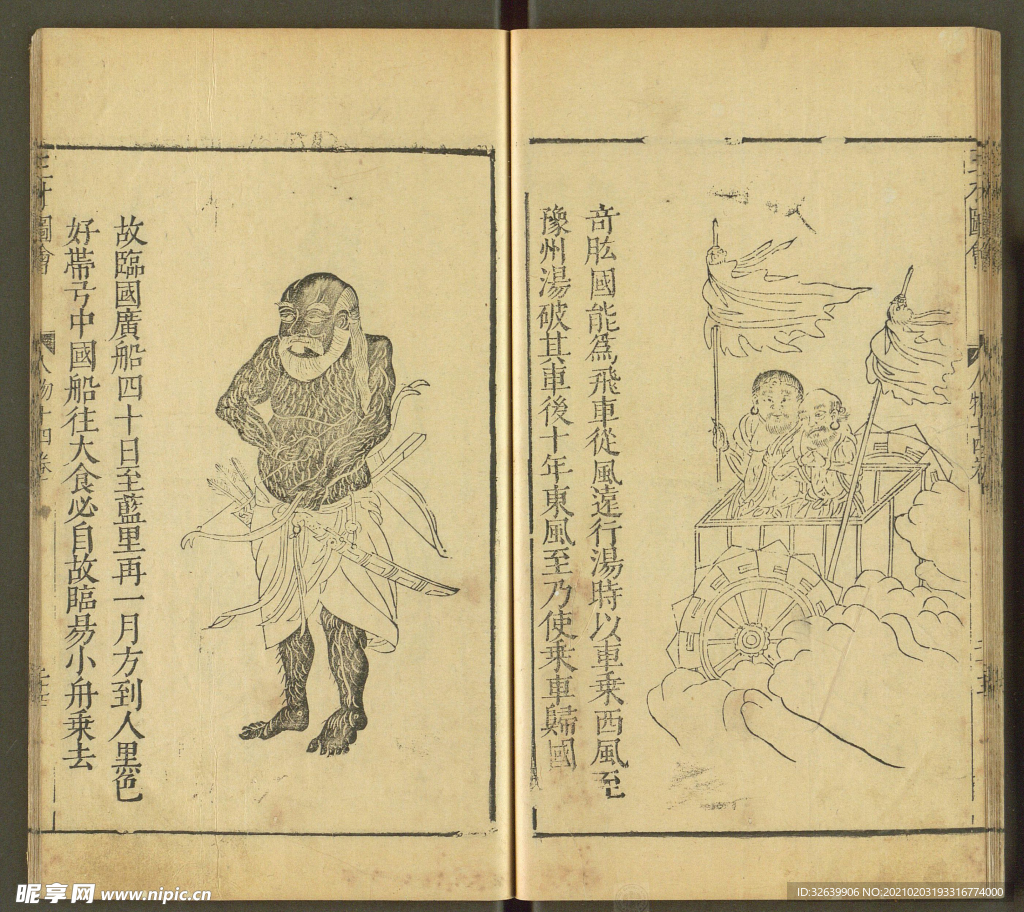 三才圖會
人物十四卷
奇肱國能為飛車從風遠行湯時以車乘西風至
豫州湯破其車後十年東風至乃使乘車歸國
故臨國廣船四十日至藍里再一月方到人黑色
好帶弓中國船往大食必自故臨易小舟乘去
三才圖會
人物十四卷
昵享网 www.nipic.cn
ID:32639906 NO:20210203193316774000